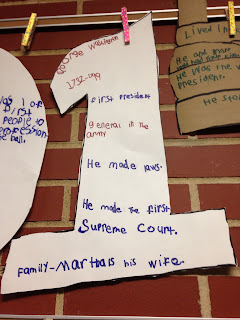 George Washington
1732-1799
first president
general in the
army
He made laws.
He made the first
Supreme Court.
Family-Martha is his wife.
was 1 of
First
people to
ball.
Lived in
He and
He was the
President.
He sto